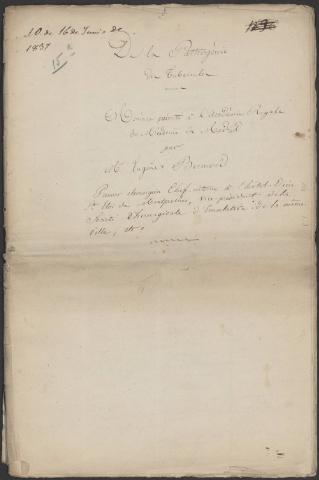 J. O. de 16 de Junio de
1837
15
De la Pathogénie
du Tubercule
Mémoire présenté à l'Académie Royale
de Médecine de Madrid
par
Mr Eugène Bermond
Premier chirurgien Chef interne à l'hôtel-Dieu
St Eloi de Montpellier, vice président de la
Société Chirurgicale d'Emulation de la même
ville, etc.